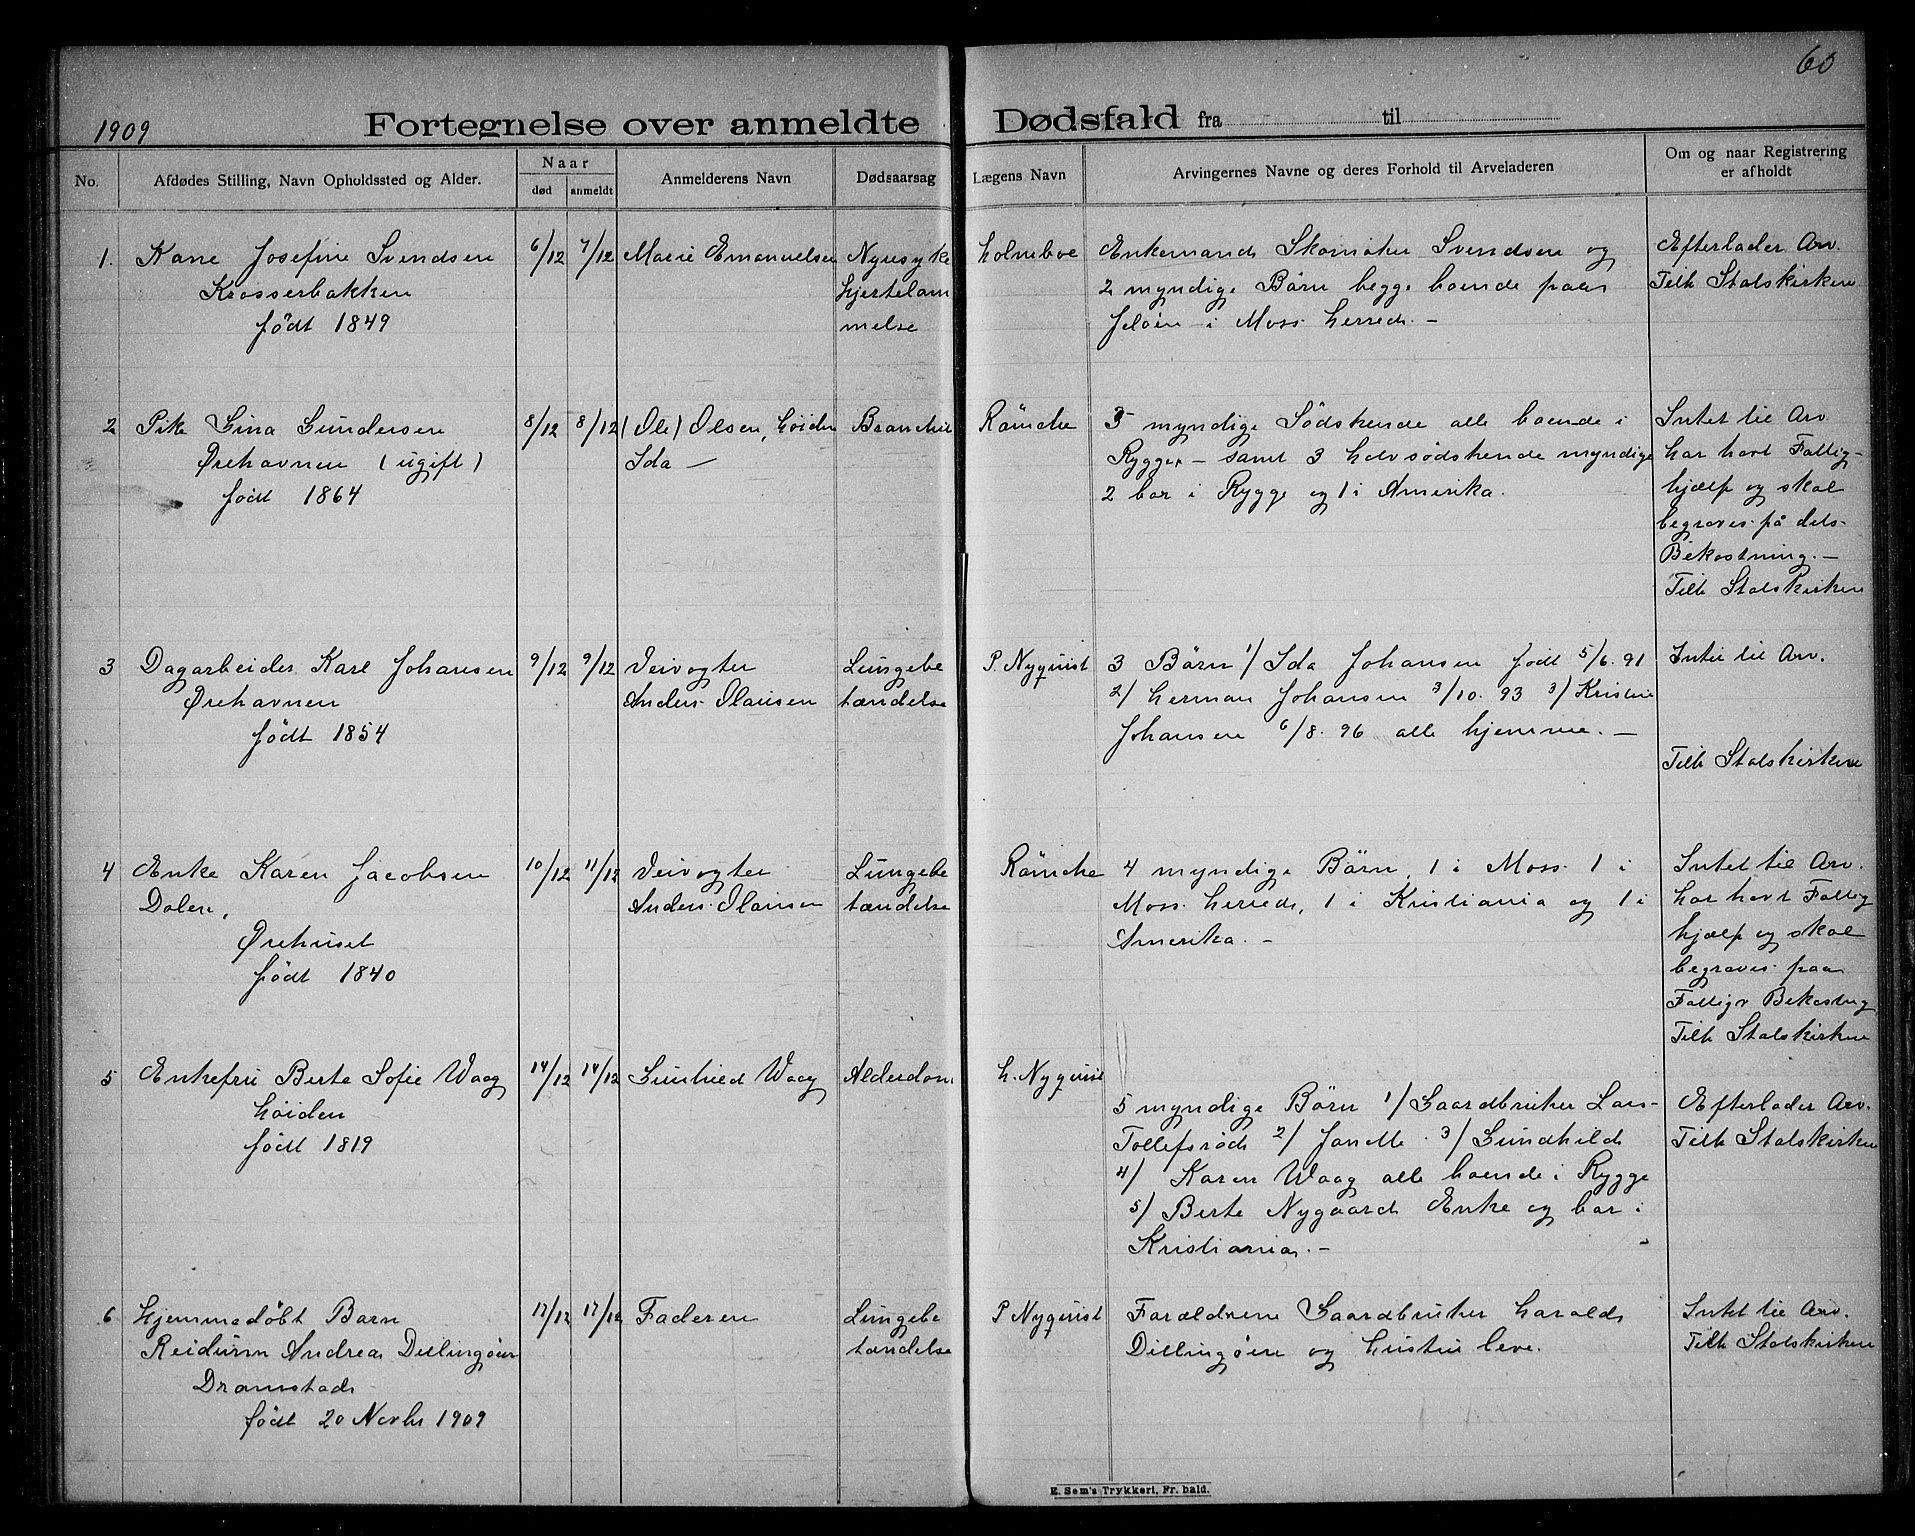 60
1909 Fortegnelse over anmeldte Dødsfald fra til
No.
Afdødes Stilling, Navn Opholdssted og Alder.
Naar
død anmeldt
Anmelderens Navn
Dødsaarsag
Lægens Navn
Arvingernes Navne og deres Forhold til Arveladeren
Om og naar Registrering
er afholdt
1. Kone Josefine Svendsen
Krosserbakken
født 1849
6/12 7/12
Marie Emanuelsen
Nyresyke
Hjertelam
melse
Holmboe
Enkemand Skomaker Svendsen og
2 myndige Børn begge boende paa
Jeløen i Moss Herred. –
Efterlader Arv.
Tilh Statskirken
2 Pike Gina Gundersen
Ørehavnen (ugift)
født 1864
8/12 8/12
(Ole) Olsen, Høiden
Ida –
Rømcke
3 myndige Sødskende alle boende i
Rygge – samt 3 Halvsødskende myndige
2 bor i Rygge og 1 i Amerika.
Intet til Arv
har havt Fattig-
hjælp og skal
begraves på dets
Bekostning. –
Tilh Statskirken
3 Dagarbeider Karl Johansen
Ørehavnen
født 1854
9/12 9/12
Veivogter
Anders Olausen
Lungebe
tændelse
P. Nyquist
3 Børn 1/ Ida Johansen født 5/6. 91
2/ Herman Johansen 3/10. 93 3/ Kristine
Johansen 6/8. 96 alle hjemme. –
Intet til Arv.
Tilh Statskirken
4 Enke Karen Jacobsen
Dalen,
Ørehuset
født 1840
10/12 11/12
Veivogter
Anders Olausen
Lungebe
tændelse
Rømcke
4 myndige Børn, 1 i Moss 1 i
Moss Herred, 1 i Kristiania og 1 i
Amerika. –
Intet til Arv.
har havt Fattig
hjælp og skal
begraves paa
Fattigv Bekostng
Tilh Statskirken
5 Enkefru Berte Sofie Waag
Høiden
født 1819
14/12 14/12
Gunhild Waag
Alderdom
H. Nyquist
5 myndige Børn 1/ Gaardbruker Lars
Tollefsrød 2/ Janette 3/ Gundhild
4/ Karen Waag alle boende i Rygge
5/ Berte Nygaard Enke og bor i
Kristiania. –
Efterlader Arv.
Tilh Statskirken
6 Hjemmedøbt Barn
Reidunn Andrea Dillingøen
Dramstad
født 20 Novbr 1909
17/12 17/12
Faderen
Lungebe
tændelse
P Nyquist
Forældrene Gaardbruker Harald
Dillingøen og Hustru leve.
Intet til Arv.
Tilh Statskirken
E. Sem's Trykkeri, Fr. hald.